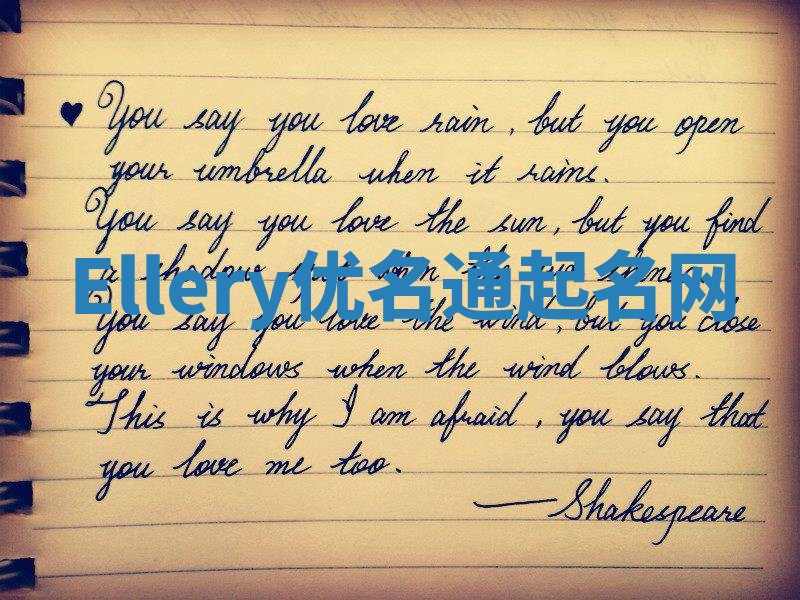 ♥ You say you love rain, but you open
your umbrella when it rains.
You say you love the sun, but you find
a shadow spot when the sun shines.
Ellery优名通起名网
You say you love the wind, but you close
your windows when the wind blows.
This is why I am afraid, you say that
you love me too.
—Shakespeare